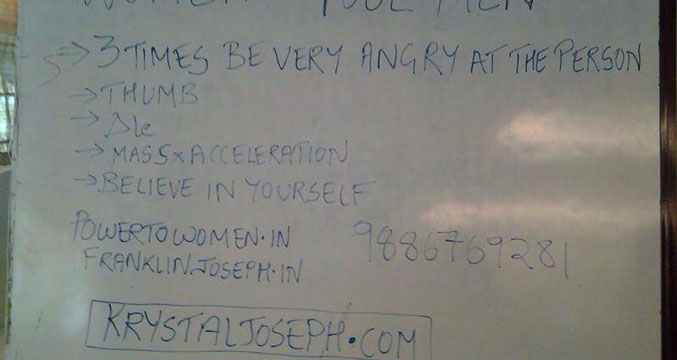 ⇒ 3 TIMES BE VERY ANGRY AT THE PERSON
→ THUMB
→ ΔK
→ MASS x ACCELERATION
→ BELIEVE IN YOURSELF
POWERTOWOMEN.IN
9886769281
FRANKLINJOSEPH.IN
KRYSTALJOSEPH.COM